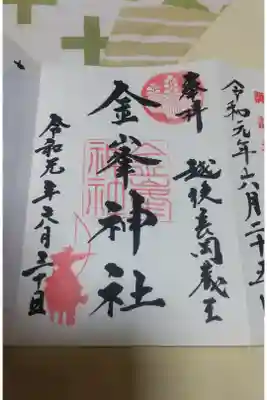 令和元年六月二十五
奉拝
越後長岡蔵王
金峯神社
令和元年六月三十日